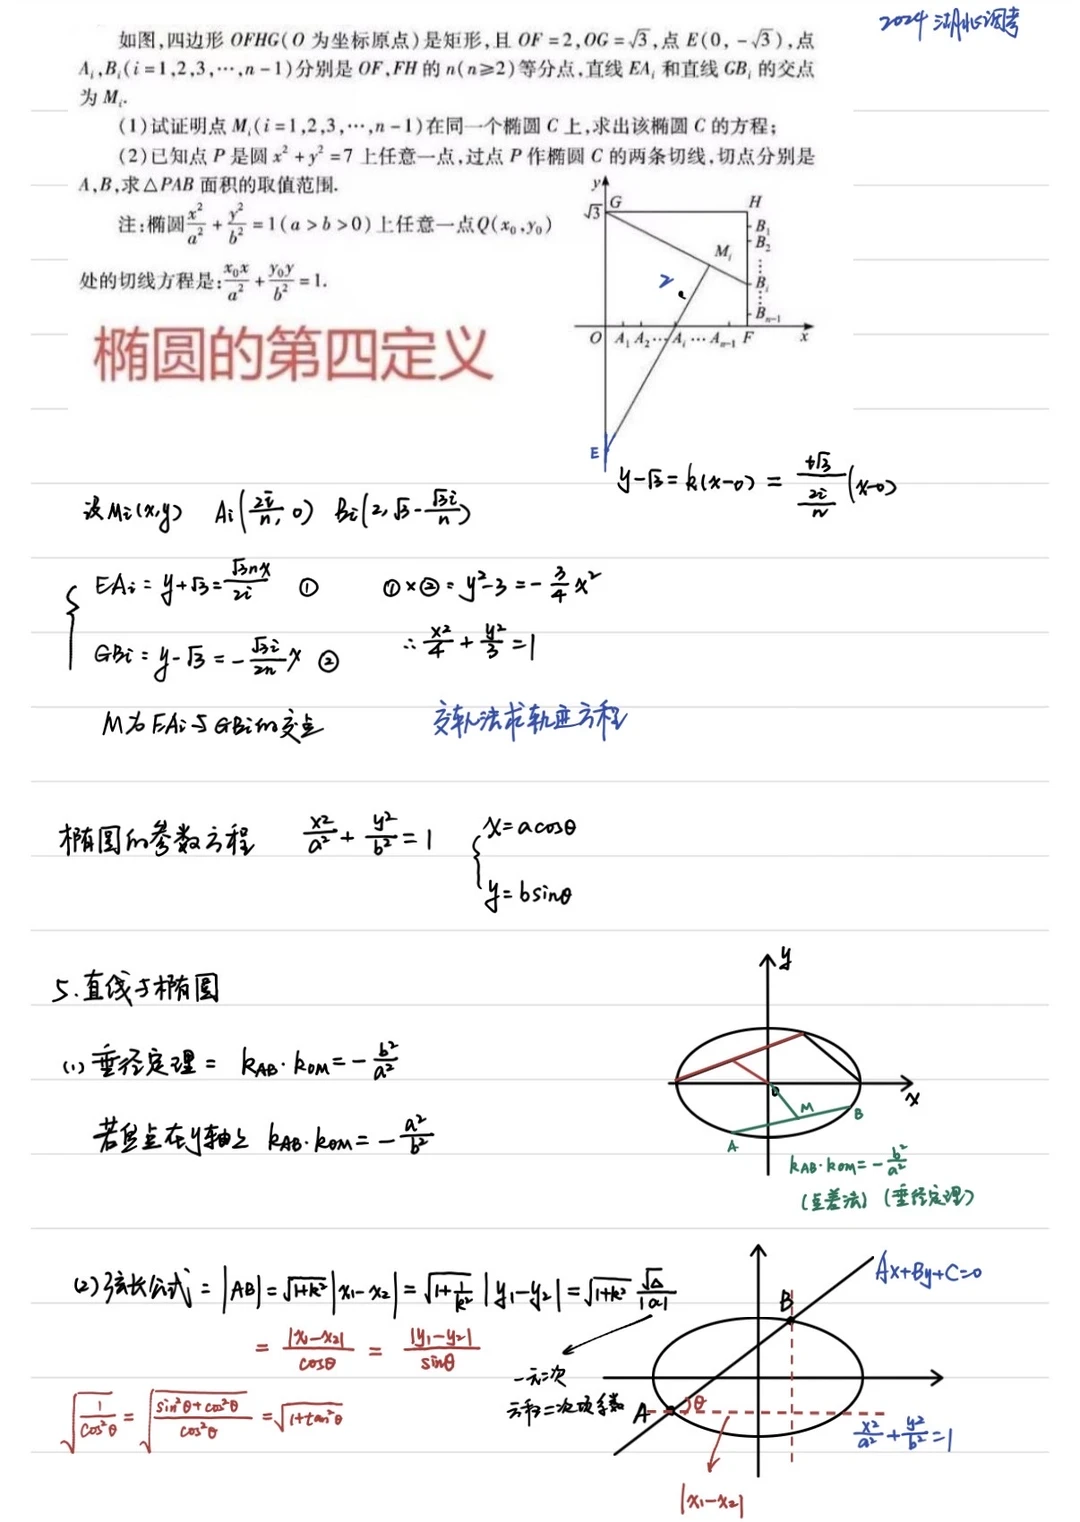 2024 湖北调考
如图,四边形 OFHG(O 为坐标原点)是矩形,且 OF=2,OG=√3,点 E(0,-√3),点
Aᵢ,Bᵢ(i=1,2,3,⋯,n-1)分别是 OF,FH 的 n(n≥2)等分点,直线 EAᵢ 和直线 GBᵢ 的交点
为 Mᵢ.
(1)试证明点 Mᵢ(i=1,2,3,⋯,n-1)在同一个椭圆 C 上,求出该椭圆 C 的方程;
(2)已知点 P 是圆 x²+y²=7 上任意一点,过点 P 作椭圆 C 的两条切线,切点分别是
A,B,求△PAB 面积的取值范围.
注:椭圆 x²/a² + y²/b² =1(a>b>0)上任意一点Q(x₀,y₀)
处的切线方程是: x₀x/a² + y₀y/b² =1.
椭圆的第四定义
y
√3 G H
B₁
B₂
Mᵢ
⋮
Bᵢ
⋮
Bₙ₋₁
O A₁ A₂ ⋯ Aᵢ ⋯ Aₙ₋₁ F x
E
y-√3=k(x-0) = t√3/(2i/n) (x-0)
设Mi(x,y) Ai(2i/n, 0) Bi(2, √3-√3i/n)
EAi: y+√3=√3nx/2i ①
①×②: y²-3=-3/4 x²
GBi: y-√3=-√3i/2n x ②
∴ x²/4 + y²/3 =1
M为EAi与GBi的交点
交轨法求轨迹方程
椭圆的参数方程 x²/a² + y²/b² =1 { x=acosθ
y=bsinθ
5.直线与椭圆
(1)垂径定理: kAB·kOM=-b²/a²
若焦点在y轴上 kAB·kOM=-a²/b²
y
x
O
M
A
B
kAB·kOM=-b²/a²
(点差法)(垂径定理)
(2)弦长公式: |AB|=√(1+k²)|x₁-x₂|=√(1+1/k²)|y₁-y₂|=√(1+k²) √Δ/|a|
= |x₁-x₂|/cosθ = |y₁-y₂|/sinθ
一元二次
方程二次项系数
√(1/cos²θ) = √((sin²θ+cos²θ)/cos²θ) =√(1+tan²θ)
Ax+By+C=0
B
A
θ
x²/a² + y²/b² =1
|x₁-x₂|